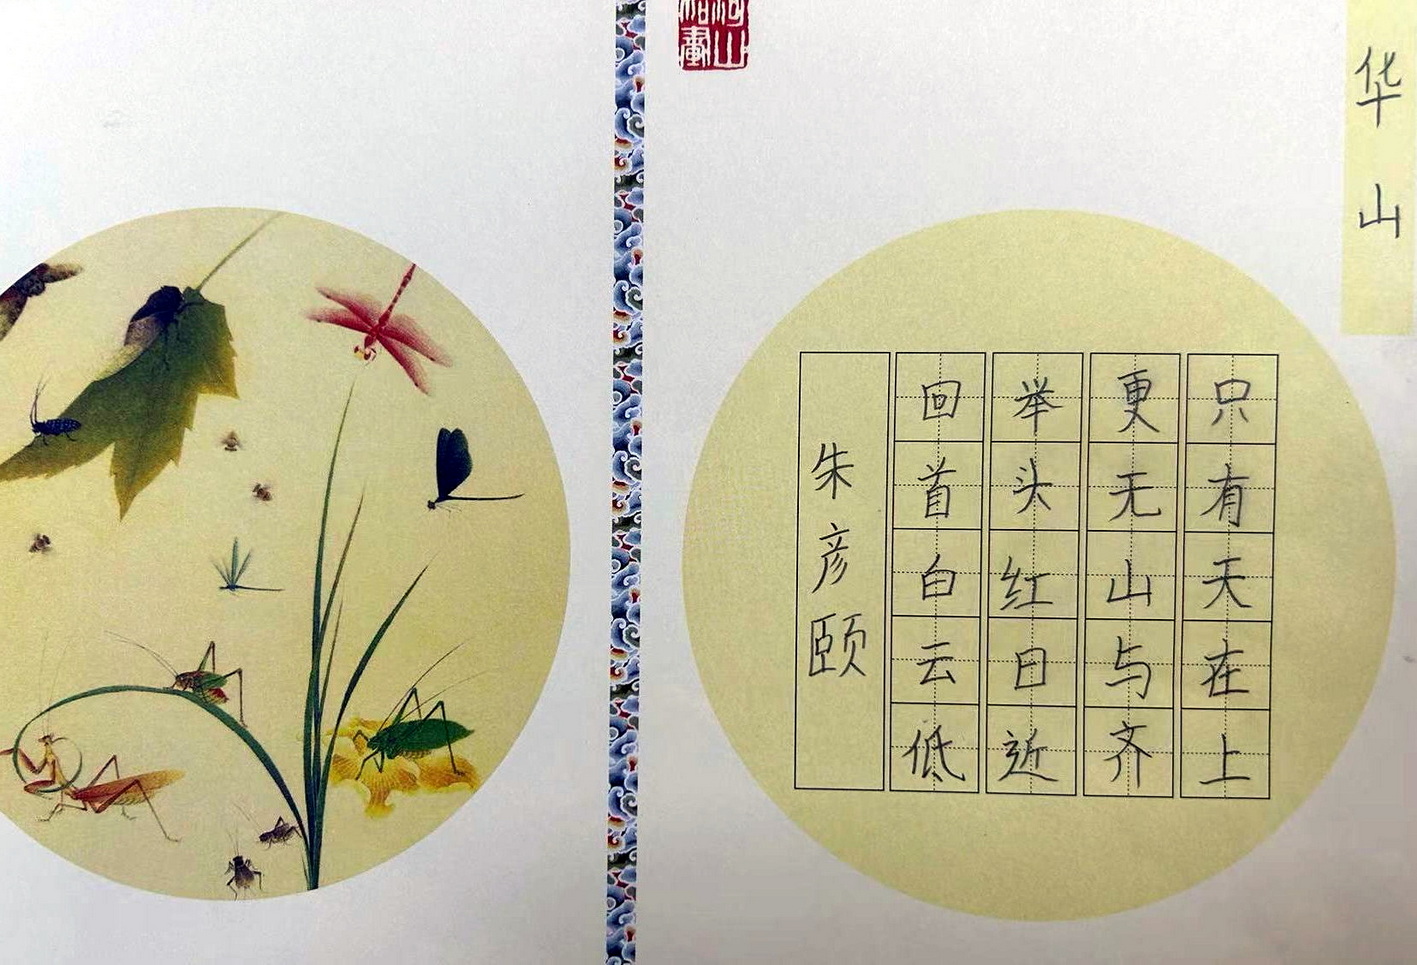 华山
只有天在上
更无山与齐
举头红日近
回首白云低
朱彦颐